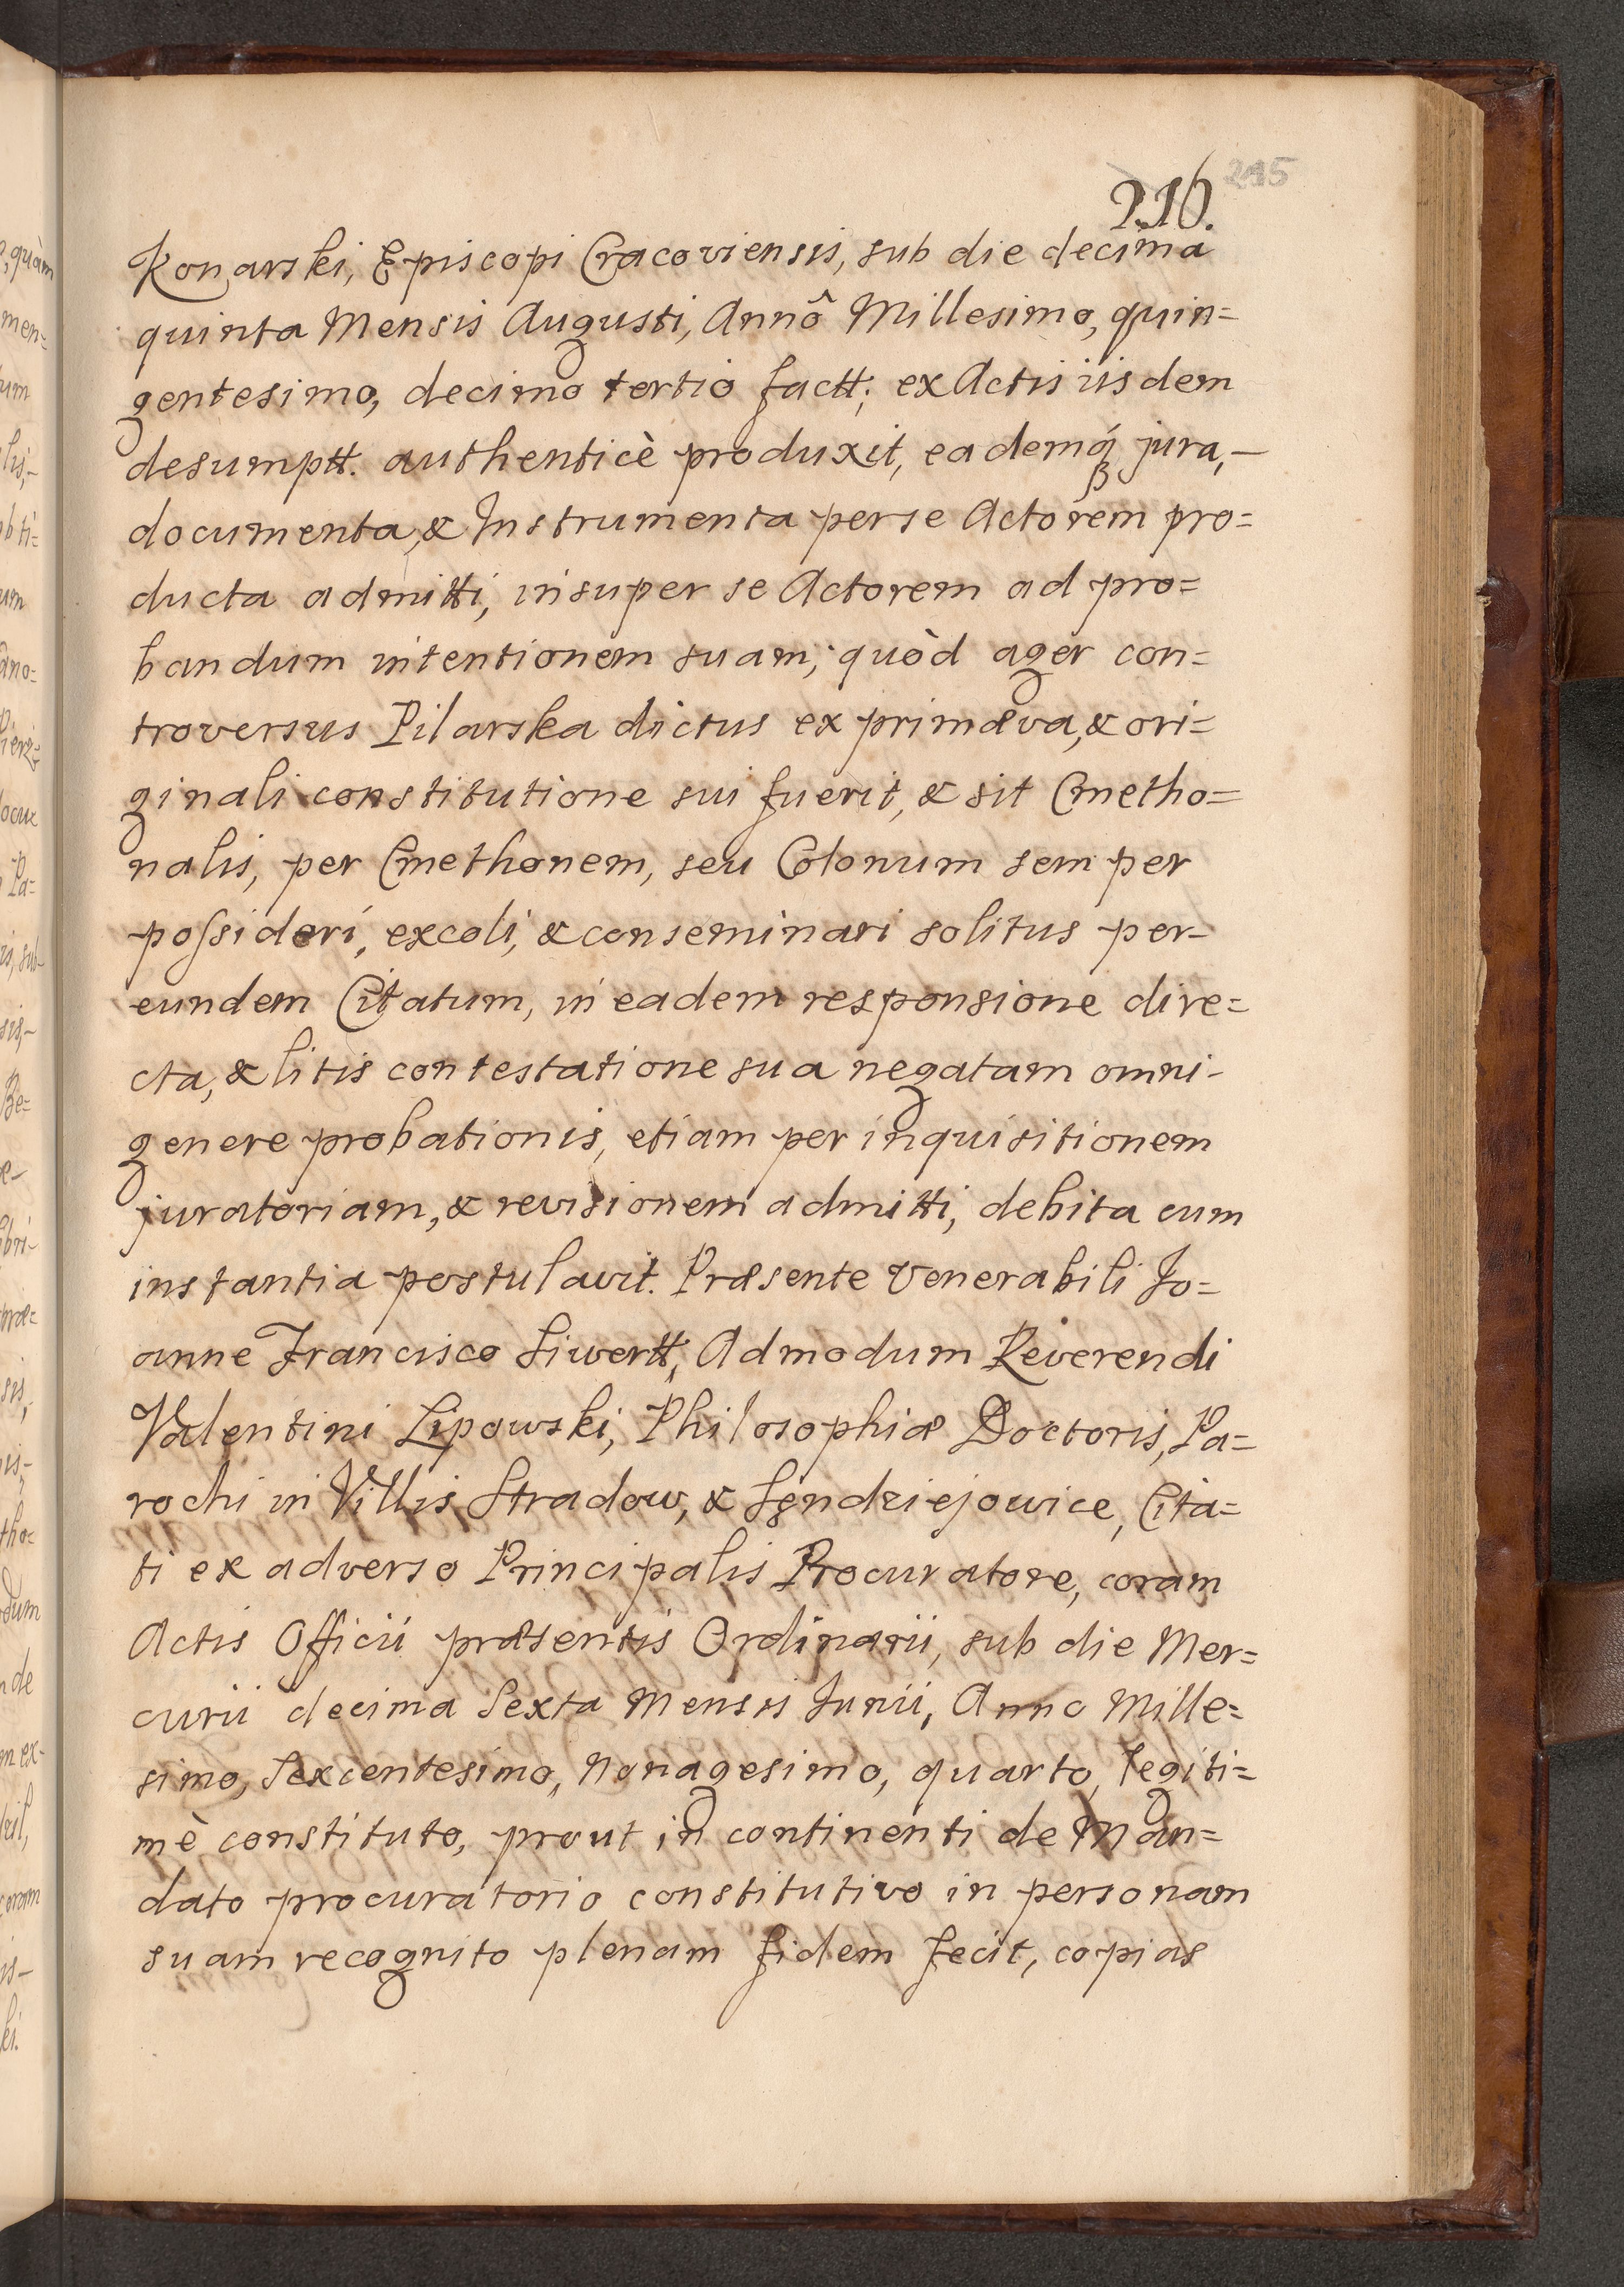 216. 215
Konarski, Episcopi Cracoviensis, sub die decima
quinta Mensis Augusti, Annô Millesimo, quin=
gentesimo, decimo tertio factt; ex Actis iisdem
desumptt. authenticè produxit, eademq́ꝫ jura,—
documenta, & Instrumenta per se Actorem pro=
ducta admitti, insuper se Actorem ad pro=
bandum intentionem suam, quòd ager con=
troversus Pilarska dictus ex primæva, & ori=
ginali constitutione sui fuerit, & sit Cmetho=
nalis, per Cmethonem, seu Colonum semper
poſsideri, excoli, & conseminari solitus per-
eundem Citatum, in eadem responsione dire=
cta, & litis contestatione sua negatam omni-
genere probationis, etiam per inquisitionem
juratoriam, & revisionem admitti, debita cum
instantia postulavit. Præsente Venerabili Jo=
anne Francisco Siwertt, Admodum Reverendi
Valentini Lipowski, Philosophiæ Doctoris, Pa=
rochi in Villis Stradow, & Sęndziejowice, Cita=
ti ex adverso Principalis Procuratore, coram
Actis Officii præsentis Ordinarii, sub die Mer=
curii decima Sexta Mensis Junii, Anno Mille=
simo, Sexcentesimo, Nonagesimo, quarto, legiti=
mè constituto, prout in continenti de Man=
dato procuratorio constitutivo in personam
suam recognito plenam fidem fecit, copias